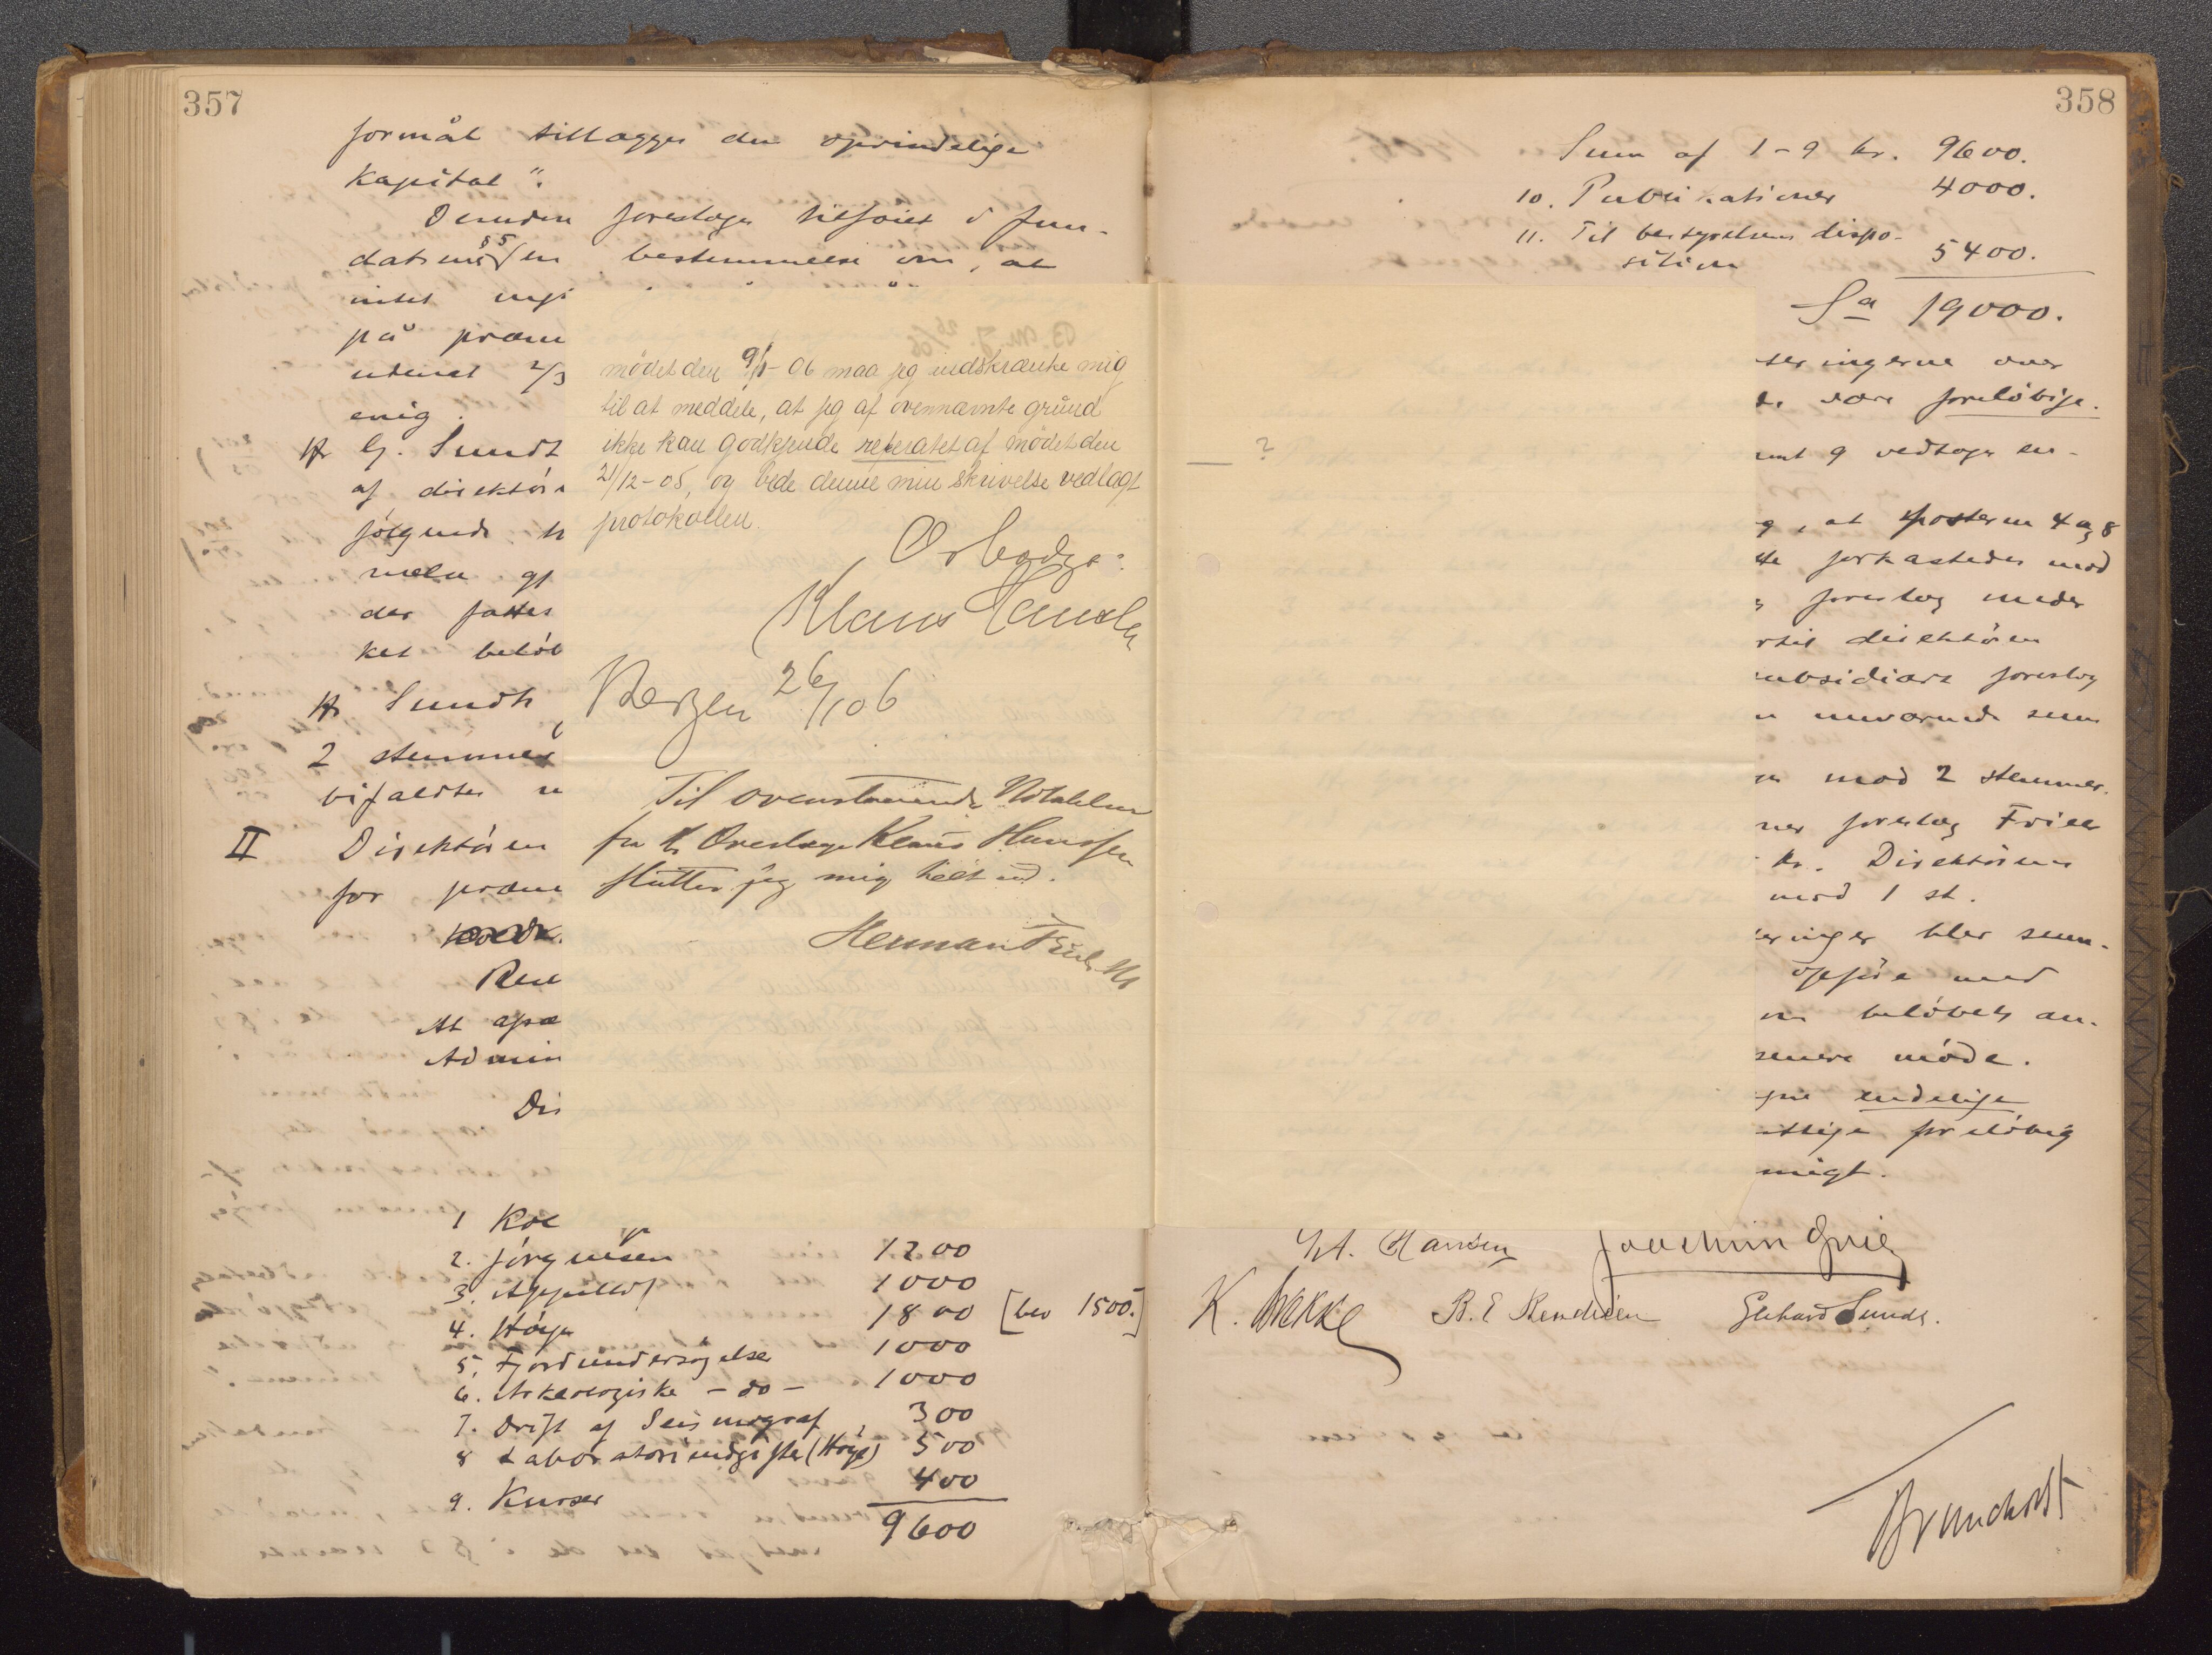 357
formål tillægges den oprindelige
kapital".
Desuden foreslåes tilføiet i fun-
datsens § 5 en bestemmelse om, at
intet
på præm
uden at 2/3
enig.
Hr G. Sundt
af direktör
følgende
der fattes
ket beløb
Hr Sundts
2 stemmer
bifaldtes
II Direktören
for præm
Adminis
Dis
1 Kol
2. Jörgensen 1200
3. Appellöf 1000
4. Höye 1800 [bev 1500.]
5. Fjordundersøgelser 1000
6. Arkæologiske - do - 1000
7. Drift af Seismograf 300
8 Laboratorieudgifter (Höye) 500
9. Kurser 400
9600
mödet den 9/1-06 maa jeg indskrænke mig
til at meddele, at jeg af ovennævnte grund
ikke kan godkjende referatet af mödet den
21/12-05, og bede denne min skrivelse vedlagt
protokollen.
Ærbødigst
Klaus Hanssen
Bergen 26/1 06
Til ovenstaaende Udtalelser
fra Hr Overlæge Klaus Hanssen
slutter jeg mig helt ud.
Herman Friele
B. M. J. 26/1 06
?
358
Sum af 1-9 kr. 9600.
10. Publikationer 4000.
11. Til bestyrelsens dispo-
sition 5400.
Sa 19000.
seringerne over
være foreløbige.
9 vedtoges en-
, at posterne 4 og 8
forkastedes mod
forslag
direktören
subsidiære forslag
nuværende sum
mod 2 stemmer.
forslag Friele
kr. Direktörens
mod 1 st.
eringer blev sum-
opføre med
beløbets an-
senere møde.
endelige
foreløbig
migt.
Hansen Joachim Grieg
K. Bakke B. E. Bendixen Gerhard Sundt.
Brunchorst